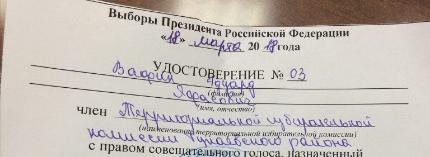 Выборы Президента Российской Федерации
«18» марта 2018 года
УДОСТОВЕРЕНИЕ № 03
Вафин Эдуард
(фамилия)
(имя, отчество)
член Территориальной избирательной
(наименование территориальной избирательной комиссии)
комиссии района
с правом совещательного голоса, назначенный